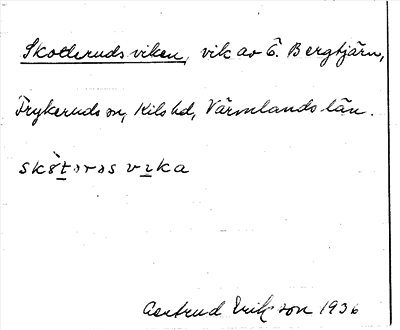 Skotterudsviken, vik av Ö. Bergtjärn,
Frykeruds sn, Kils hd, Värmlands län.
vika
Gertrud Erikson 1936